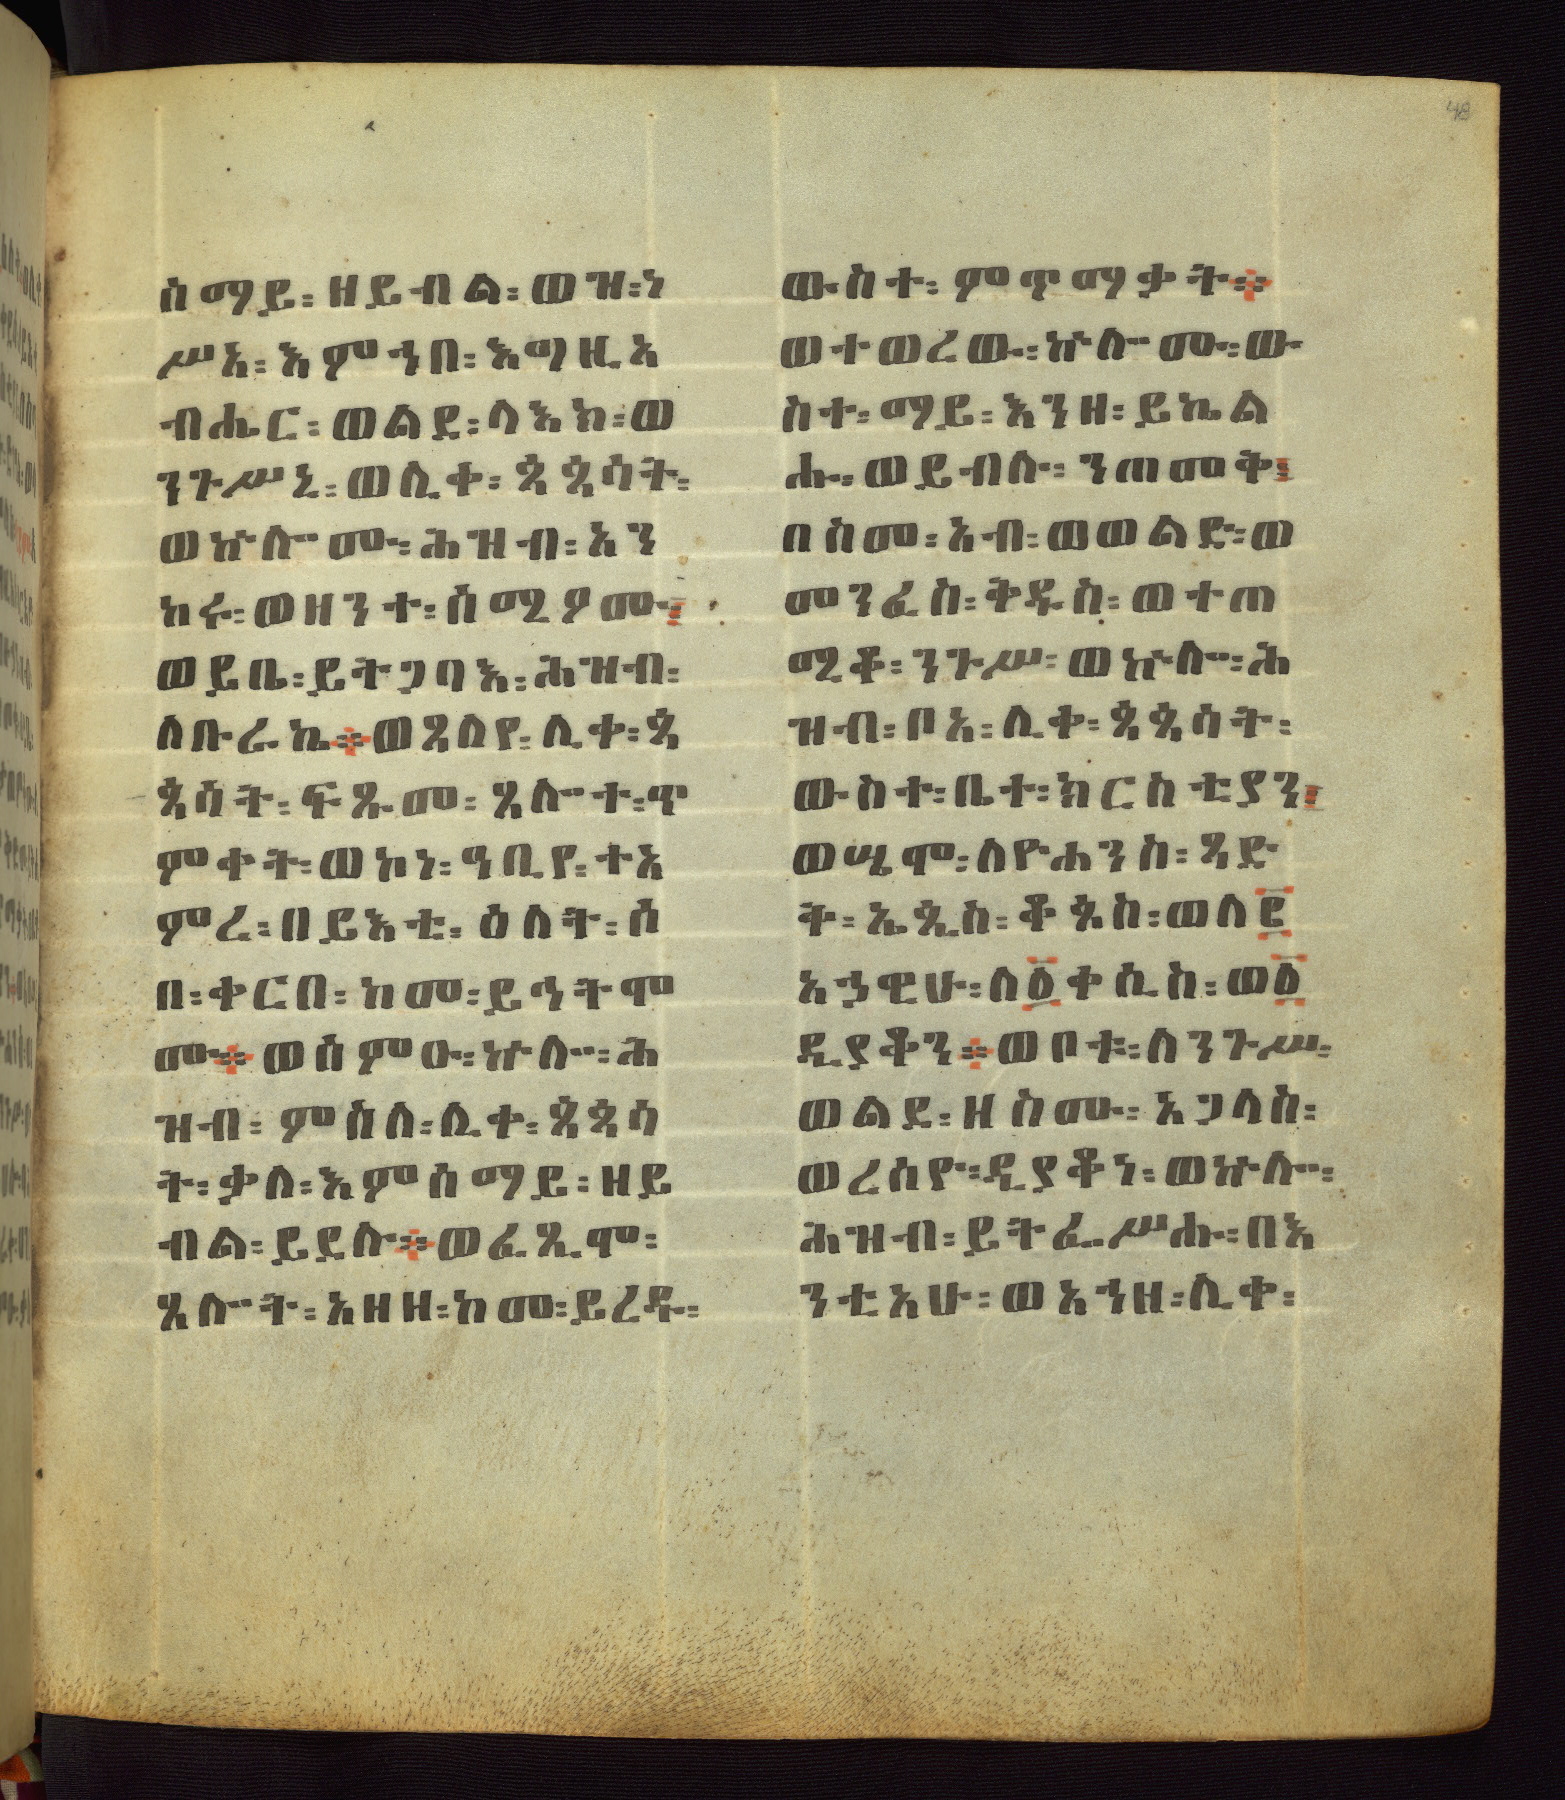 48
ሰማይ፡ ዘይብል፡ ወዝ፡ነ
ሥአ፡ እምኀበ፡ እግዚአ
ብሔር፡ ወልደ፡ ላእክ፡ ወ
ንጉሥኒ፡ ወሊቀ፡ ጳጳሳት፡
ወኵሎሙ፡ ሕዝብ፡ አን
ከሩ፡ ወዘንተ፡ ሰሚዖሙ፤
ወይቤ፡ ይትጋባእ፡ ሕዝብ፡
ለቡራኬ። ወጸለየ፡ ሊቀ፡ ጳ
ጳሳት፡ ፍጹመ፡ ጸሎተ፡ ጥ
ምቀት፡ ወኮነ፡ ዓቢየ፡ ተአ
ምረ፡ በይእቲ፡ ዕለት፡ ሰ
በ፡ ቀርበ፡ ከመ፡ ይኅትሞ
ሙ። ወሰምዑ፡ ኵሎ፡ ሕ
ዝብ፡ ምስለ፡ ሊቀ፡ ጳጳሳ
ት፡ ቃለ፡ እምሰማይ፡ ዘይ
ብል፡ ይደሉ። ወፈጺሞ፡
ጸሎት፡ አዘዘ፡ ከመ፡ ይረዱ፡
ውስተ፡ ምጥማቃት።
ወተወረው፡ ኵሎሙ፡ ው
ስተ፡ ማይ፡ እንዘ፡ ይኬል
ሑ፡ ወይብሉ፡ ንጠመቅ፤
በስመ፡ አብ፡ ወወልድ፡ ወ
መንፈስ፡ ቅዱስ፡ ወተጠ
ሚቆ፡ ንጉሥ፡ ወኵሎ፡ ሕ
ዝብ፡ ቦአ፡ ሊቀ፡ ጳጳሳት፡
ውስተ፡ ቤተ፡ ክርስቲያን፤
ወሤሞ፡ ለዮሐንስ፡ ጻድ
ቅ፡ ኤጲስ፡ ቆጶስ፡ ወለ፪
አኃዊሁ፡ ለ፩ቀሲስ፡ ወ፩
ዲያቆን። ወቦቱ፡ ለንጉሥ፡
ወልደ፡ ዘስሙ፡ አጋላስ፡
ወረሰዮ፡ ዲያቆነ፡ ወኵሎ፡
ሕዝብ፡ ይትፌሥሑ፡ በእ
ንቲአሁ፡ ወአኀዘ፡ ሊቀ፡